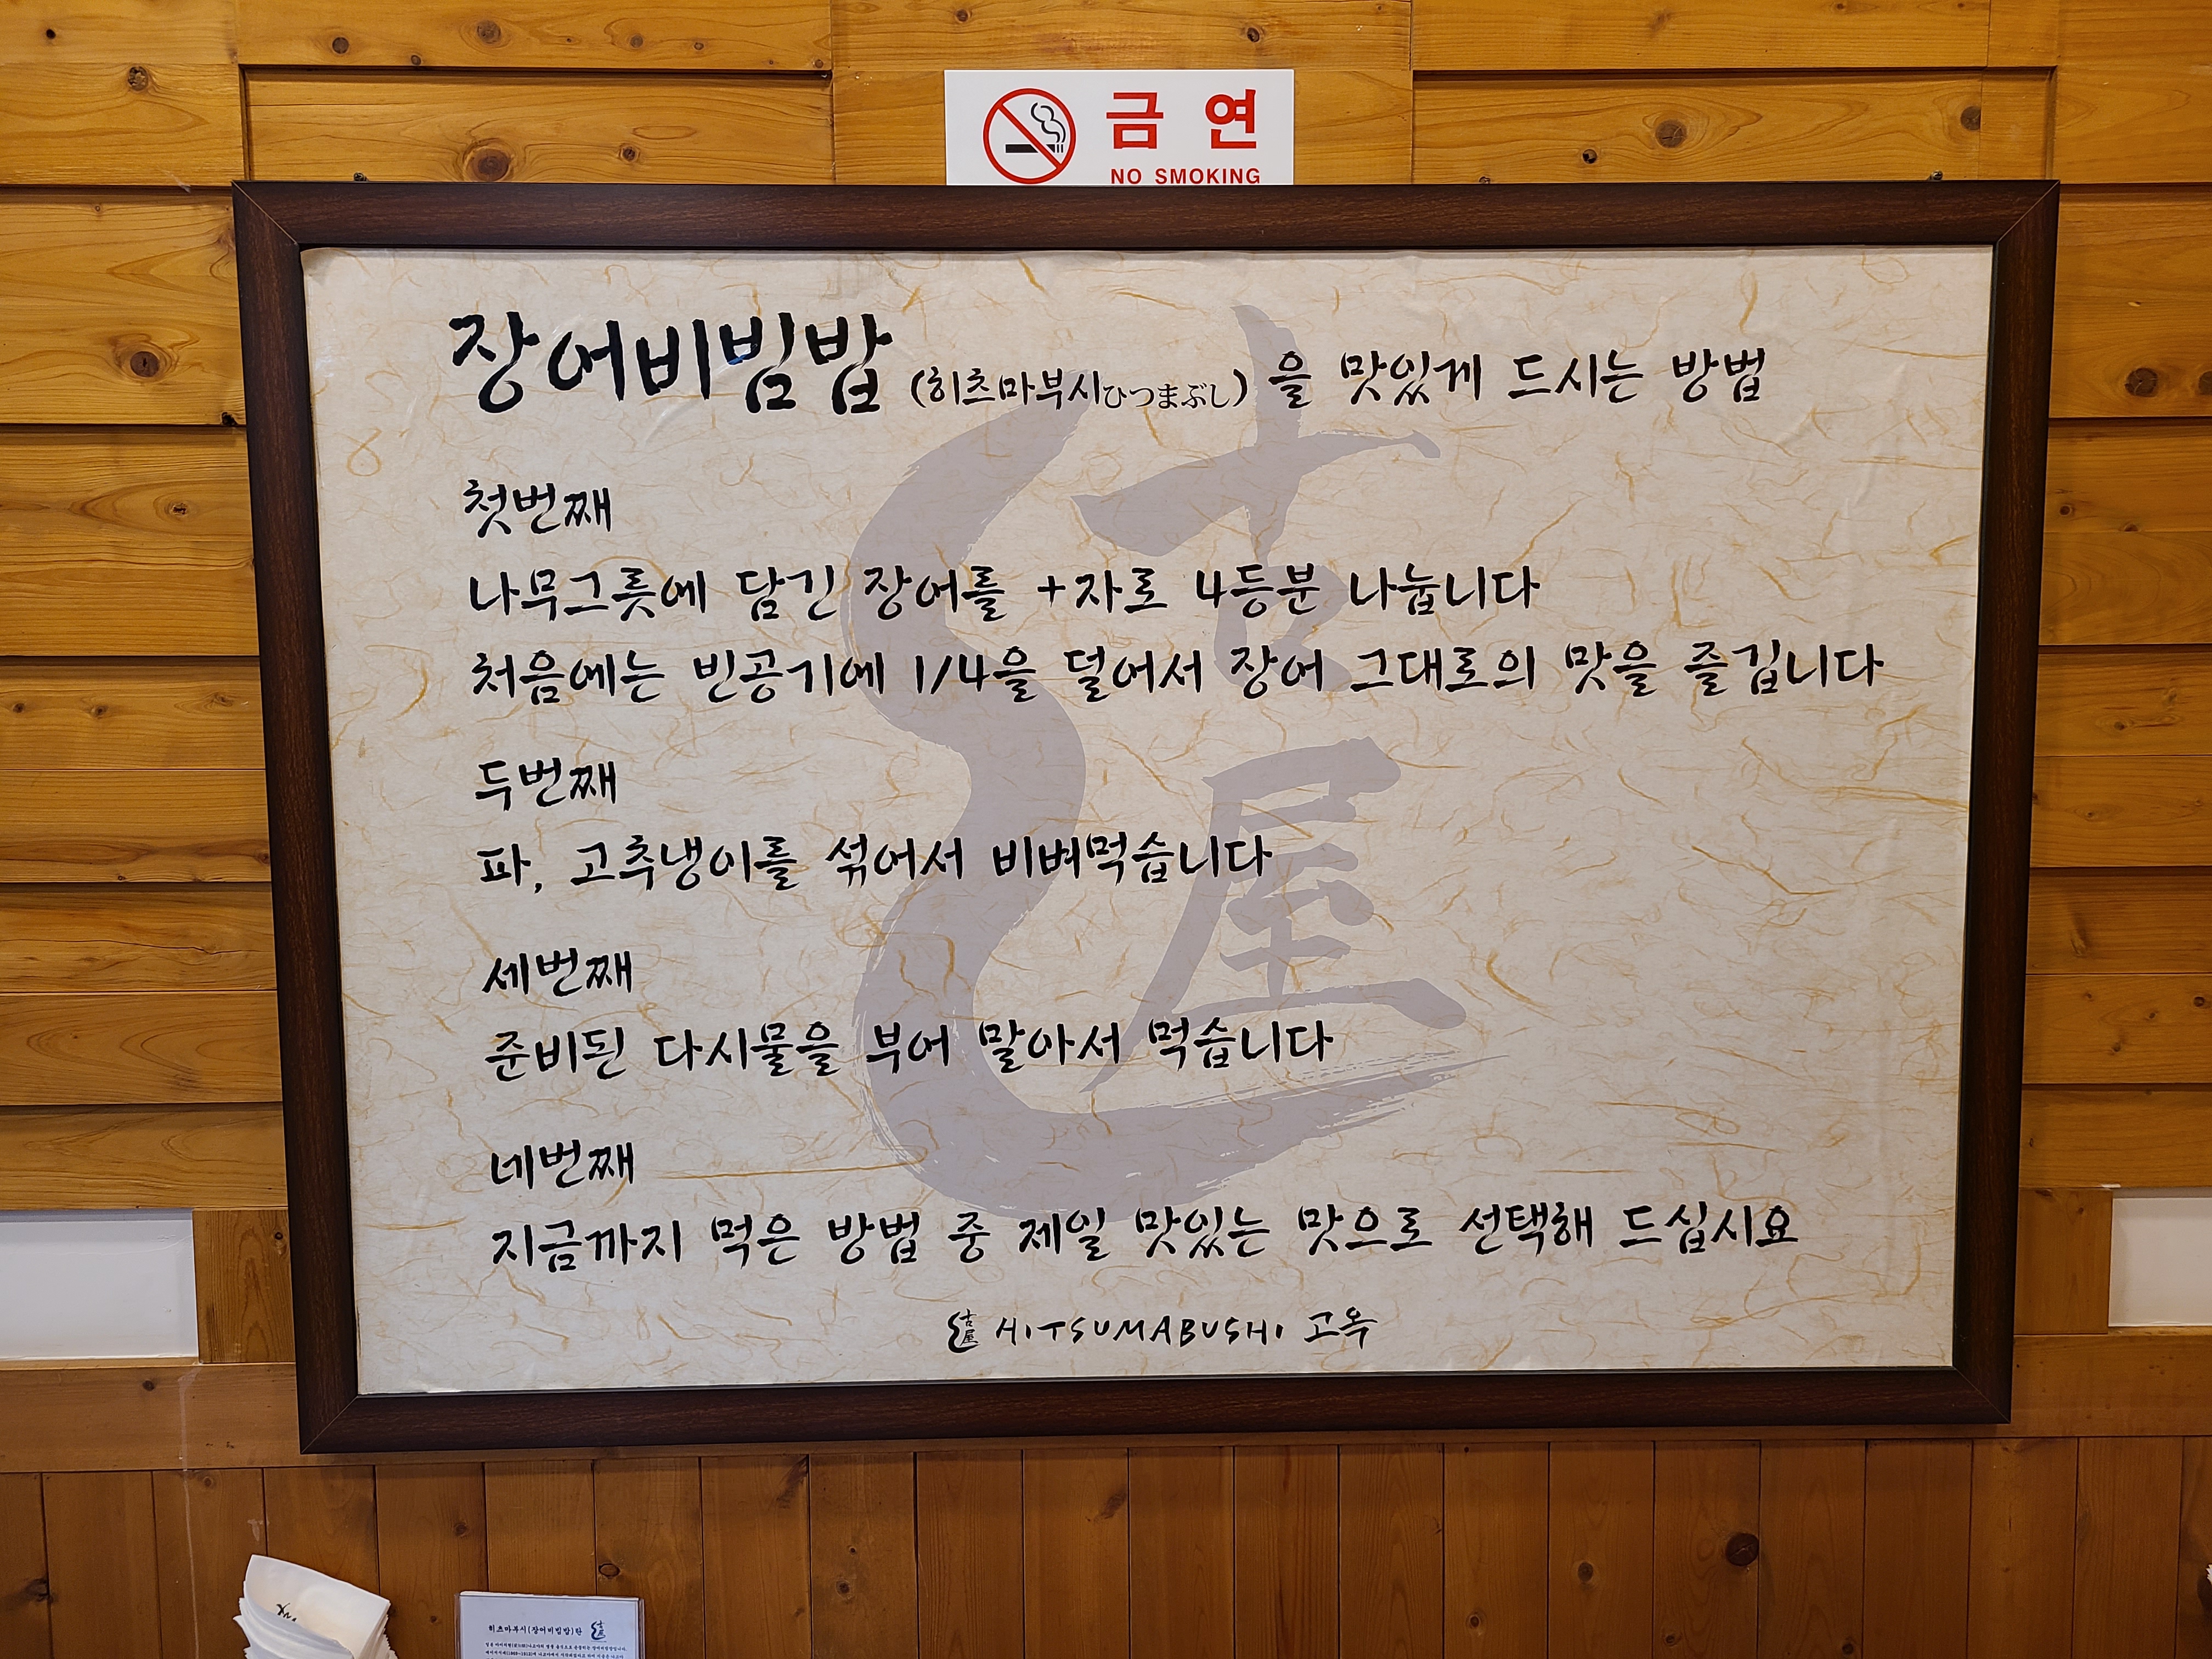 금 연
NO SMOKING
장어비빔밥 (히츠마부시ひつまぶし) 을 맛있게 드시는 방법
첫번째
나무그릇에 담긴 장어를 +자로 4등분 나눕니다
처음에는 빈공기에 1/4을 덜어서 장어 그대로의 맛을 즐깁니다
두번째
파, 고추냉이를 섞어서 비벼먹습니다
세번째
준비된 다시물을 부어 말아서 먹습니다
네번째
지금까지 먹은 방법 중 제일 맛있는 맛으로 선택해 드십시요
古屋
古屋 HITSUMABUSHI 고옥
히츠마부시(장어비빔밥)란